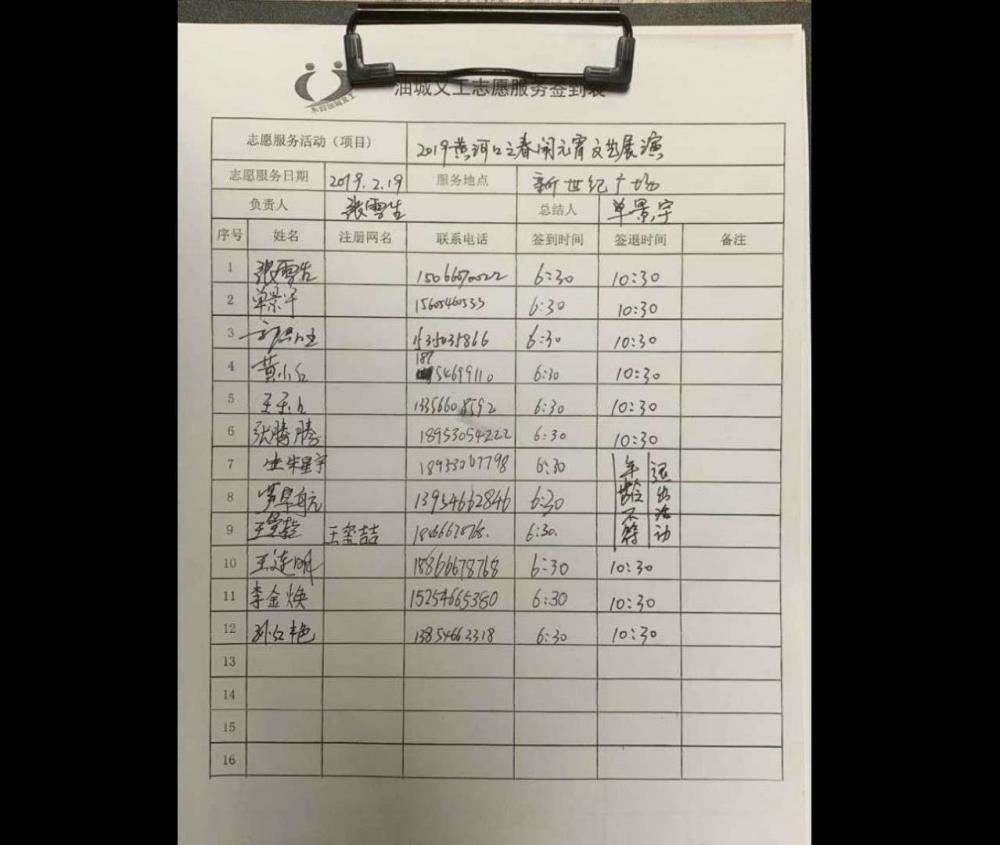 油城义工志愿服务签到表
志愿服务活动（项目） 2019黄河口之春闹元宵文艺展演
志愿服务日期 2019.2.19 服务地点 新世纪广场
负责人 张雪浩 总结人 单景宇
序号 姓名 注册网名 联系电话 签到时间 签退时间 备注
1 张雪浩 15066670022 6:30 10:30
2 单景宇 15605460333 6:30 10:30
3 6:30 10:30
4 黄小红 18754699110 6:30 10:30
5 13356608592 6:30 10:30
6 张腾腾 18953054222 6:30 10:30
7 6:30 年龄不符 退出活动
8 13954662846 6:30
9 王玺喆 18866678768. 6:30.
10 王连明 18866678768 6:30 10:30
11 李金焕 15254665380 6:30 10:30
12 孙红艳 13854662318 6:30 10:30
13
14
15
16